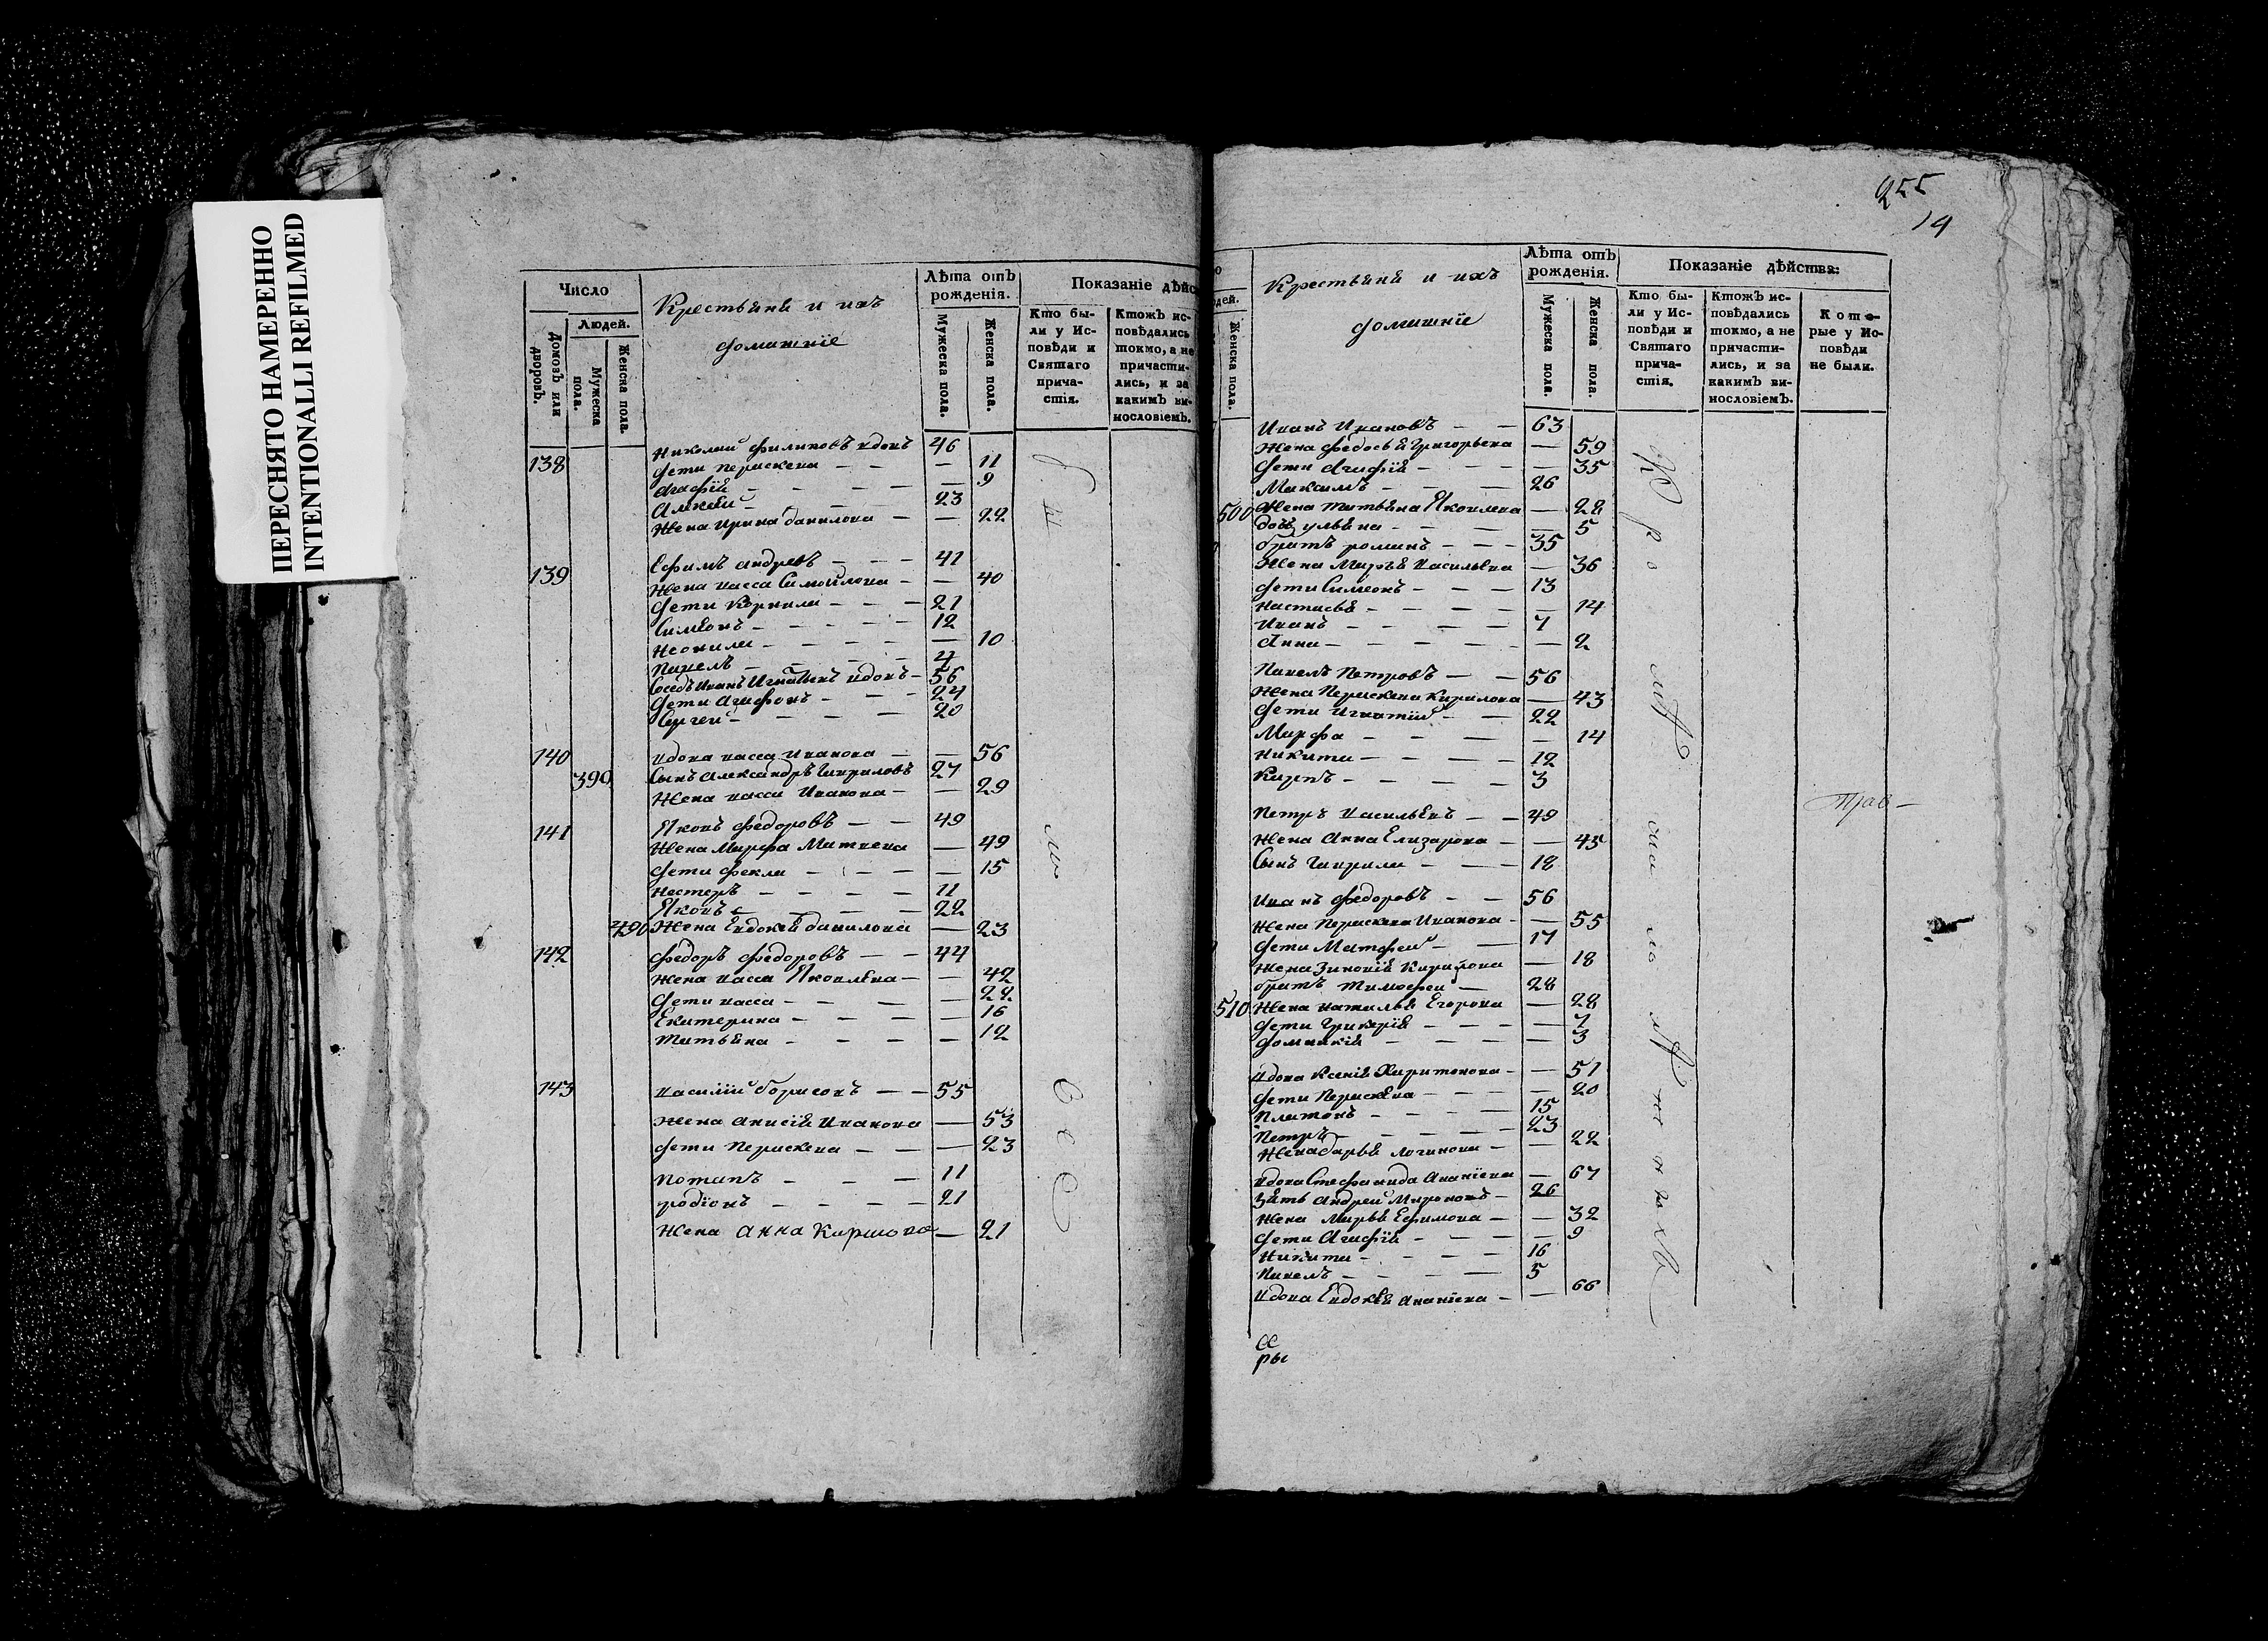 ПЕРЕСНЯТО НАМЕРЕННО
INTENTIONALLI REFILMED
Число
Людей.
Домовъ или дворовъ.
Мужеска пола.
Женска пола.
Крестьяня и ихъ
домашніе
Лѣта отъ рожденія.
Мужеска пола.
Женска пола.
Показаніе дѣйс
Кто бы-
ли у Ис-
повѣди и
Святаго
прича-
стія.
Ктожъ ис-
повѣдались
токмо, а не
причасти-
лись, и за
какимъ ви-
нословіемъ.
138 Николай филиповъ вдовъ 46
дети Параскева — — — 11
Агафія — — — — 9
Алексей — — 23
Жена Ирина данилова — — 22
139 Ефимъ андреевъ — — — 41
Жена васса Самойлова — — 40
дети Корнили — — — 21
Симеонъ — — — — 12
Неонила — — — — 10
Павелъ — — — — 4
Соседъ Иванъ Игнатьевъ вдовъ — 56
дети Агафонъ — — — 24
Сергей — — — — 20
140 вдова васса Иванова — — 56
399 Сынъ Александръ Гавриловъ 27
Жена васса Иванова — — 29
141 Яковъ федоровъ — — 49
Жена Марфа Матвеева — 49
дети фекла — — — — 15
Нестеръ — — — — 11
Яковъ — — — 22
490 Жена Евдокея данилова — 23
142 федоръ федоровъ — — 44
Жена васса Яковлева — — 42
дети васса — — — — 22
Екатерина — — — — 16
Татьяна — — — — — 12
143 василій борисовъ — — 55
Жена анисія Иванова — 53
дети Параскева — — — 23
Потапъ — — — 11
родіонъ — — — — 21
Жена Анна — 21
Все
255
14
Женска пола.
Крестьяня и ихъ
домашніе
Лѣта отъ рожденія.
Мужеска пола.
Женска пола.
Показаніе дѣйства:
Кто бы-
ли у Ис-
повѣди и
Святаго
прича-
стія.
Ктожъ ис-
повѣдались
токмо, а не
причасти-
лись, и за
какимъ ви-
нословіемъ.
Кото-
рые у Ис-
повѣди
не были.
Иванъ Ивановъ — — 63
Жена федосья Григорьева — 59
дети Агафія — — — — 35
Максимъ — — — 26
500 Жена татьяна Яковлева — 28
дочь ульяна — — — — 5
братъ романъ — — — 35
Жена Марья васильева — 36
дети Симеонъ — — — 13
Настасья — — — — — 14
Иванъ — — — — 7
Анна — — — — — 2
Павелъ Петровъ — — 56
Жена Параскева Кирилова — 43
дети Игнатій — — 22
Марфа — — — — 14
Никита — — — — 12
Карпъ — — — — 3
Петръ васильевъ — — 49
Жена Анна Елизарова — — 45
Сынъ Гаврила — — — 18
Иванъ федоровъ — — 56
Жена Параскева Иванова — — 55
дети Матфей — — 17
Жена Зиновія Кирилова — 18
братъ Тимофей — 28
510 Жена наталья Егорова — 28
дети — — — — 7
домникія — — — — 3
вдова Ксенія Харитонова — — 51
дети Параскева — — — — 20
Платонъ — — — — 15
Петръ — — — — 23
Жена дарья логинова — — 22
вдова Стефанида Ананіева — 67
Зять андрей Мироновъ — 26
Жена Марья Ефимова — — 32
дети Агафія — — — — 9
Никита — — — — 16
Павелъ — — — — 5
вдова Евдокея ананіева — — 66
ры